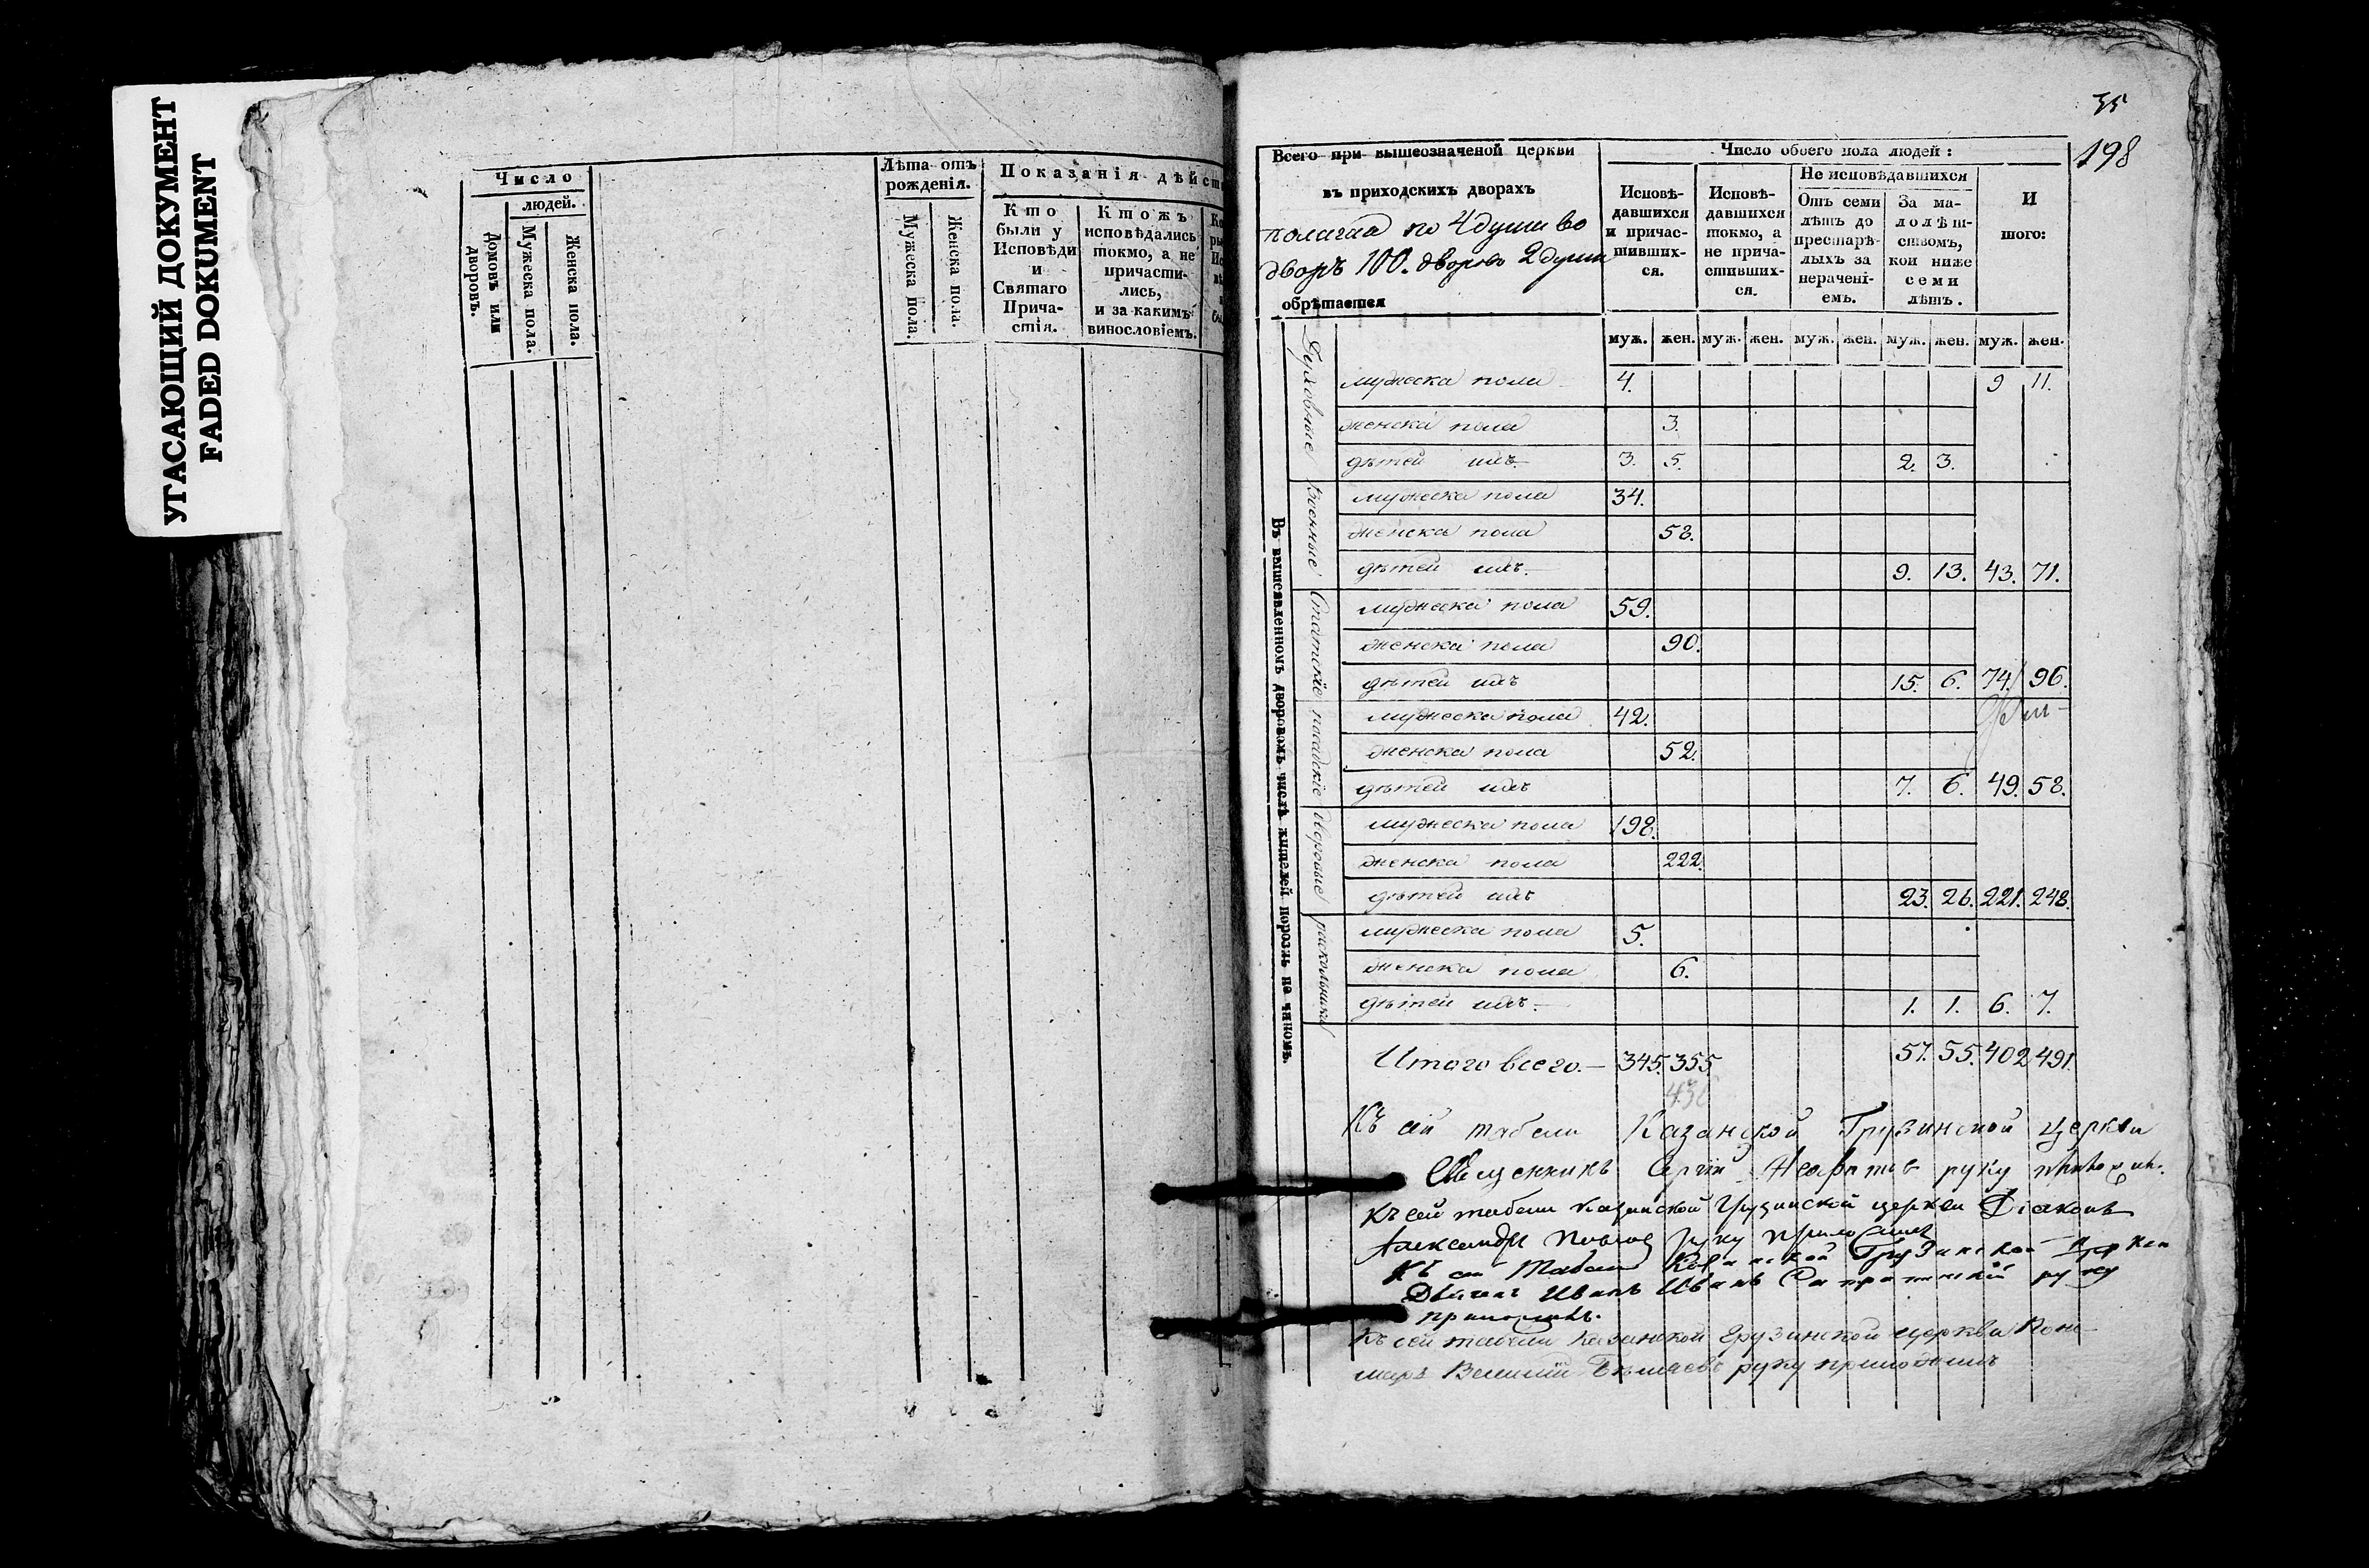 УГАСАЮЩИЙ ДОКУМЕНТ
FADED DOKUMENT
Число
людей.
Домовъ или дворовъ.
Мужеска пола.
Женска пола.
Лѣта отъ рожденія.
Мужеска пола.
Женска пола.
Показанія дѣйст
Кто были у Исповѣди и Святаго Причастія.
Ктожъ исповѣдались токмо, а не причастились, и за какимъ винословіемъ.
35
198
Всего при вышеозначеной церкви
въ приходскихъ дворахъ
полагая по 4 души во
дворъ 100. дворовъ 2 души
обрѣтается
Число обоего пола людей:
Исповѣдавшихся и причастившихся.
Исповѣдавшихся токмо, а не причастившихся.
Не исповѣдавшихся
Отъ семи лѣтъ до престарѣлыхъ за нераченіемъ.
За малолѣтствомъ, кои ниже семи лѣтъ.
И шого:
муж. жен. муж. жен. муж. жен. муж. жен. муж. жен.
Въ вышеявленномъ дворовомъ числѣ жителей порознь по чиномъ.
Духовные
мужеска пола 4. 9 11.
женска пола 3.
дѣтей ихъ 3. 5. 2. 3.
Военные
мужеска пола 34.
женска пола 58.
дѣтей ихъ. 9. 13. 43. 71.
Статскіе
мужеска пола 59.
женска пола 90.
дѣтей ихъ 15. 6. 74. 96.
посадскіе
мужеска пола 42.
женска пола 52.
дѣтей ихъ 7. 6. 49. 58.
Дворовые
мужеска пола 198.
женска пола 222.
дѣтей ихъ 23. 26. 221. 248.
раскольники
мужеска пола 5.
женска пола 6.
дѣтей ихъ. 1. 1. 6. 7.
Итого всего.— 345. 355 57. 55. 402 491.
Къ сей табели Казанской Грузинской церкви
Священникъ Сергій руку приложилъ.
Къ сей табели Казанской Грузинской церкви Діаконъ
Александръ руку приложилъ
Къ сей табели Казанской Грузинской церкви
Дьячекъ Иванъ Ивановъ руку
приложилъ.
Къ сей табели Казанской Грузинской церкви Поно-
марь Василій руку приложилъ